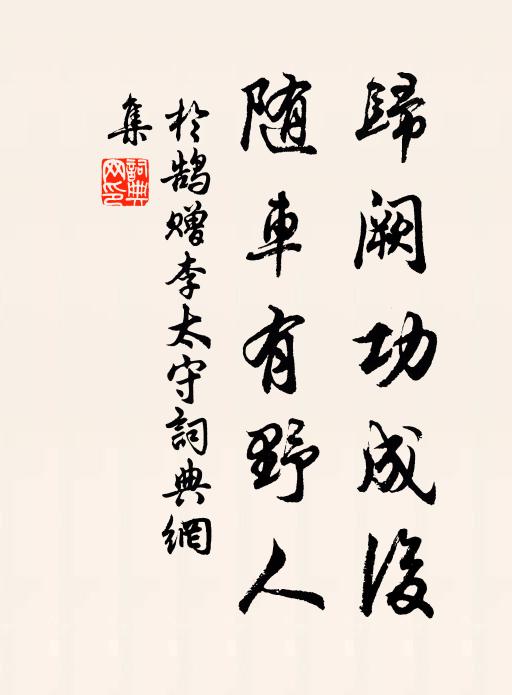 歸闕功成後
随車有野人
於鵠赠李太守詞典網
集
詞典網印